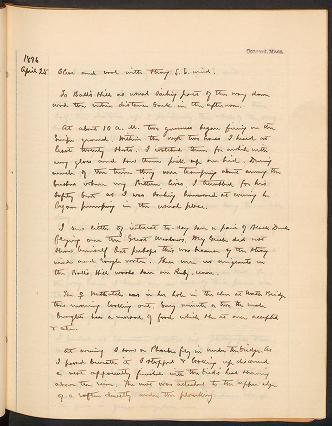 Concord, Mass.
1896
April 25 Clear and cool with strong S.E. wind.
To Ball's Hill as usual sailing part of the way down
and the entire distance back in the afternoon.
At about 10 a.m. two gunners began firing on the
Snipe ground. Within the next two hours I heard at
least twenty shots. I watched them for awhile with
my glass and saw them pick up one bird. During
much of the time they were tramping about among the
bushes where my Bittern lives. I trembled for his
safety but as I was sailing homeward at evening he
began pumping in the usual place.
I saw little of interest to-day save a pair of Black Duck
flying over the Great Meadows. My did not
show himself but perhaps this was because of the strong
wind and rough water. There were no migrants in
the Ball's Hill woods save one Ruby-crown.
The ♀ Nuthatch was in her hole in the elm at North Bridge
this morning looking out. Every minute or two the male
brought her a morsel of food which she at once accepted
& ate.
At evening I saw a Phoebe fly in under the bridge. As
I passed beneath it I stopped & looking up discovered
a nest apparently finished with the bird's head showing
above the rim. The nest was attached to the upper edge
of a rafter directly under the planking.